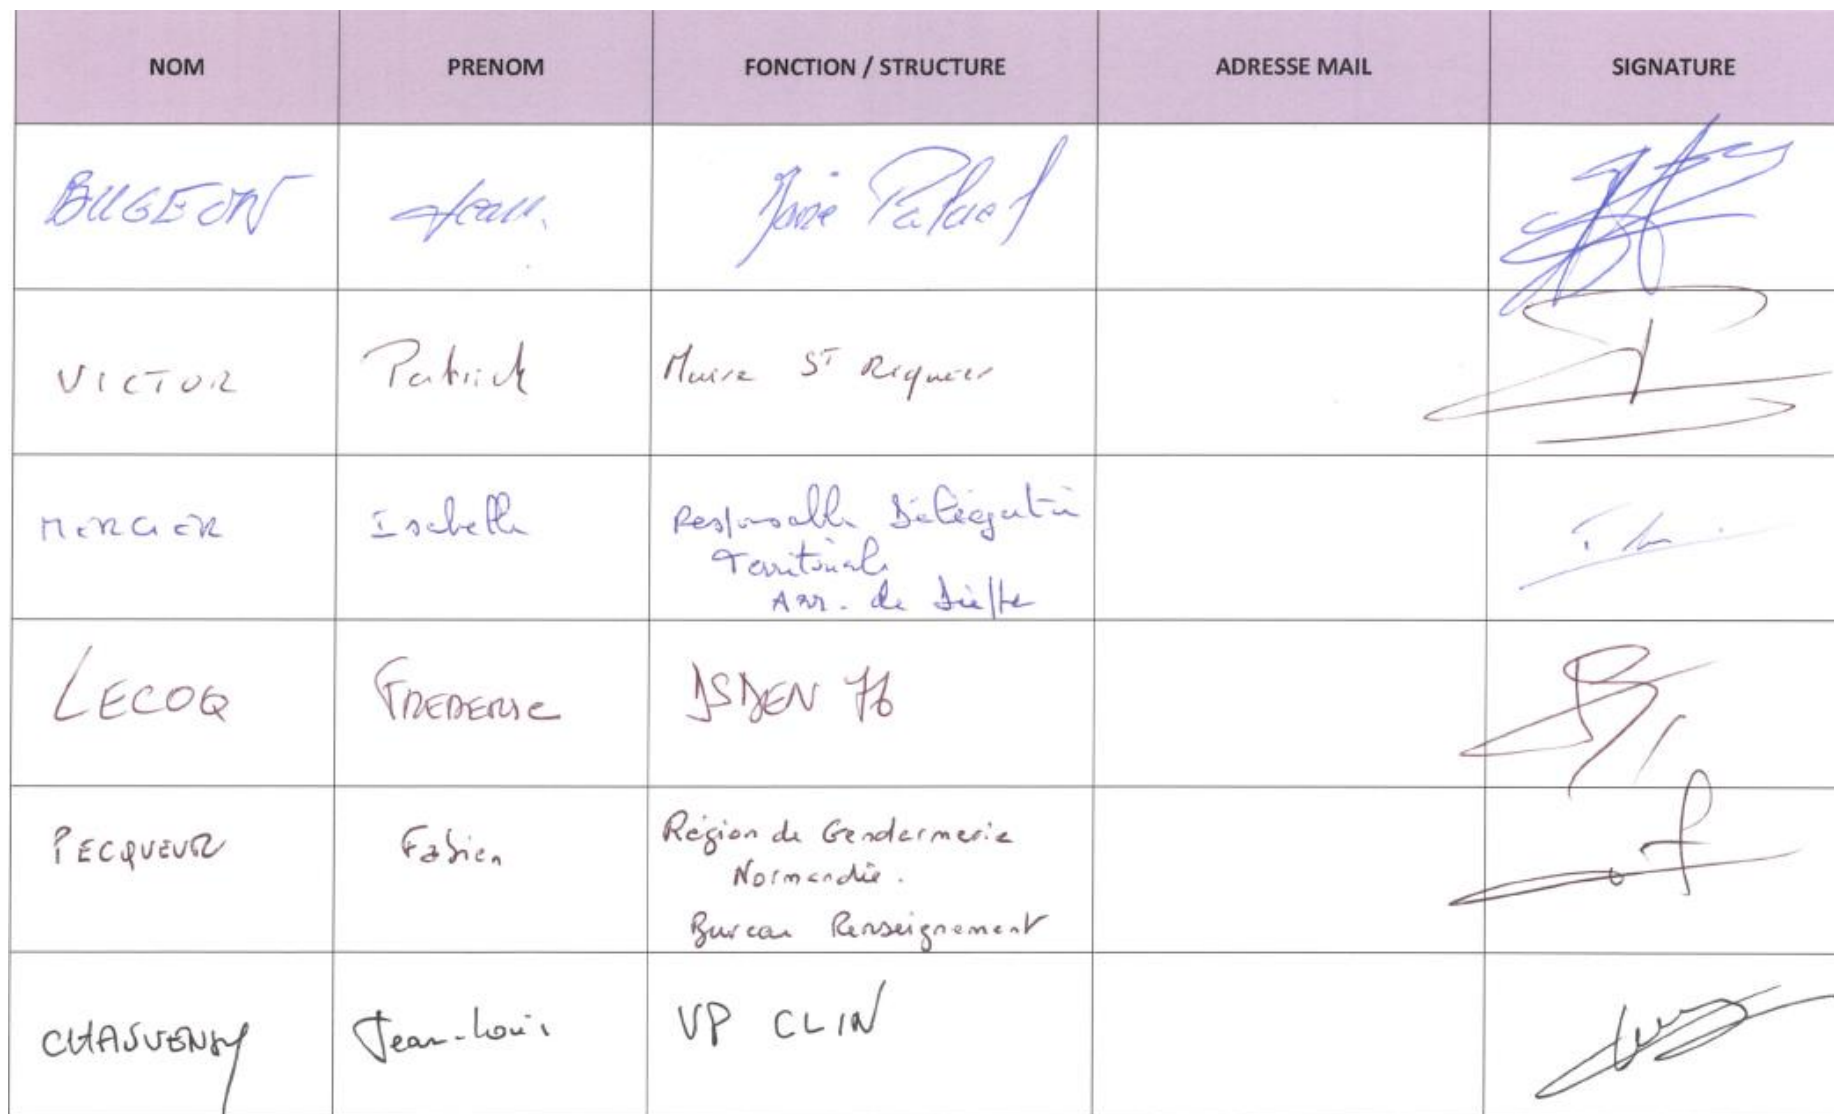 NOM PRENOM FONCTION / STRUCTURE ADRESSE MAIL SIGNATURE
BUGEON Jean
VICTOR Patrick Maire ST Riquier
MERCIER Isabelle Responsable Délégation
Territoriale
Arr. de Dieppe
LECOQ FREDERIC DSDEN 76
PECQUEUR Fabien Région de Gendarmerie
Normandie.
Bureau Renseignement
Jean-Louis VP CLIN